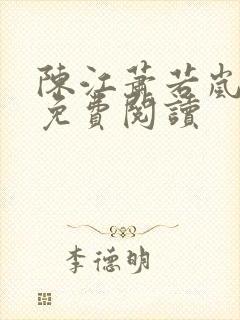 陳江蕭若嵐
免費閱讀
李德明